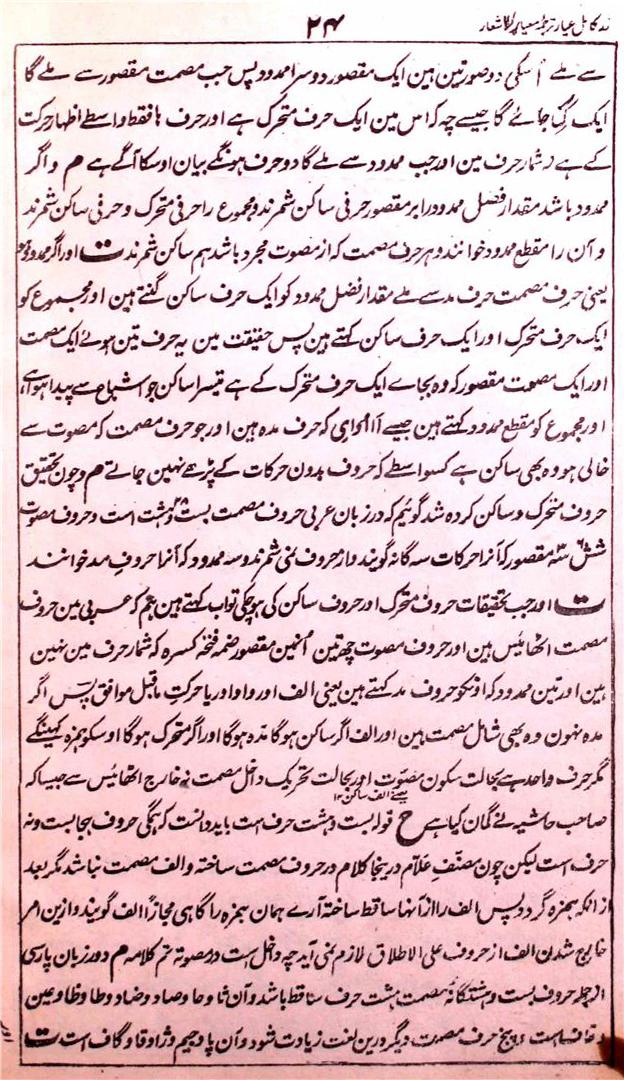 ۲۴
زر کامل عیار ترجمہ معیار الاشعار
سے ملے اُسکی دو صورتین ہین ایک مقصور دوسرا ممدود پس جب مصمت مقصور سے ملے گا
ایک گنا جائے گا جیسے چہ کہ اس مین ایک حرف متحرک ہے اور حرف ہا فقط واسطے اظہار حرکت
کے ہے نہ شمار حرف مین اور جب ممدود سے ملے گا دو حرف ہونگے بیان اوسکا آگے ہے م و اگر
ممدود باشد مقدار فضل ممدود را بر مقصور حرفی ساکن شمرند و مجموع را حرفی متحرک و حرفی ساکن شمرند
و آن را مقطع ممدود خوانند و ہر حرف مصمت کہ از مصوت مجرد باشد ہم ساکن شمرند ت اور اگر ممدود ہو
یعنی حرف مصمت حرف مد سے ملے مقدار فضل ممدود کو ایک حرف ساکن گنتے ہین اور مجموع کو
ایک حرف متحرک اور ایک حرف ساکن کہتے ہین پس حقیقت مین یہ حرف تین ہوئے ایک مصمت
اور ایک مصوت مقصور کہ وہ بجاے ایک حرف متحرک کے ہے تیسرا ساکن جو اشباع سے پیدا ہوا ہے
اور مجموع کو مقطع ممدود کہتے ہین جیسے کہ حرف مدہ ہین اور جو حرف مصمت کہ مصوت سے
خالی ہو وہ بھی ساکن ہے کسواسطے کہ حروف بدون حرکات کے پڑھے نہین جاتے م و چون تحقیق
حروف متحرک و ساکن کردہ شد گوئیم کہ در زبان عربی حروف مصمت بست و ہشت است و حروف مصوت
شش سہ مقصور کہ آنرا حرکات سہ گانہ گویند و از حروف نمی شمرند و سہ ممدود کہ آنرا حروف مد خوانند
ت اور جب تحقیقات حروف متحرک اور حروف ساکن کی ہو چکی تو اب کہتے ہین ہم کہ عربی مین حروف
مصمت اٹھائیس ہین اور حروف مصوت چھ تین اُنمین مقصور ضمہ فتحہ کسرہ کہ شمار حرف مین نہین
ہین اور تین ممدود کہ اونکو حروف مد کہتے ہین یعنی الف اور واو اور یا حرکت ماقبل موافق پس اگر
مدہ نہون وہ بھی شامل مصمت ہین اور الف اگر ساکن ہوگا مدہ ہوگا اور اگر متحرک ہوگا اوسکو ہمزہ کہینگے
مگر حرف واحد ہے بحالت سکون مصوت اور بحالت تحریک داخل مصمت نہ خارج اٹھائیس سے جیسا کہ
یعنے الف ساکن ۱۲
صاحب حاشیہ نے گمان کیا ہے ح قولہ بست و ہشت حرف است باید دانست کہ ہمگی حروف ہجا بست و نہ
حرف است لیکن چون مصنف علام درینجا کلام در حروف مصمت ساختہ و الف مصمت نباشد مگر بعد
از انکہ ہمزہ گردد پس الف را از آنہا ساقط ساختہ آرے ہمان ہمزہ را گاہی مجازاً الف گویند و ازین امر
خارج شدن الف از حروف علی الاطلاق لازم نمی آید چہ داخل است در مصوتہ تم کلامہ م و در زبان پارسی
از جملہ حروف بست و ہشتگانہ مصمت ہشت حرف ساقط باشد و آن ثا و حا و صاد و ضاد و طا و ظا و عین
و قاف است و پنج حرف مصمت دیگر درین لغت زیادت شود و آن پا و چیم و ژا و فا و گاف است ت